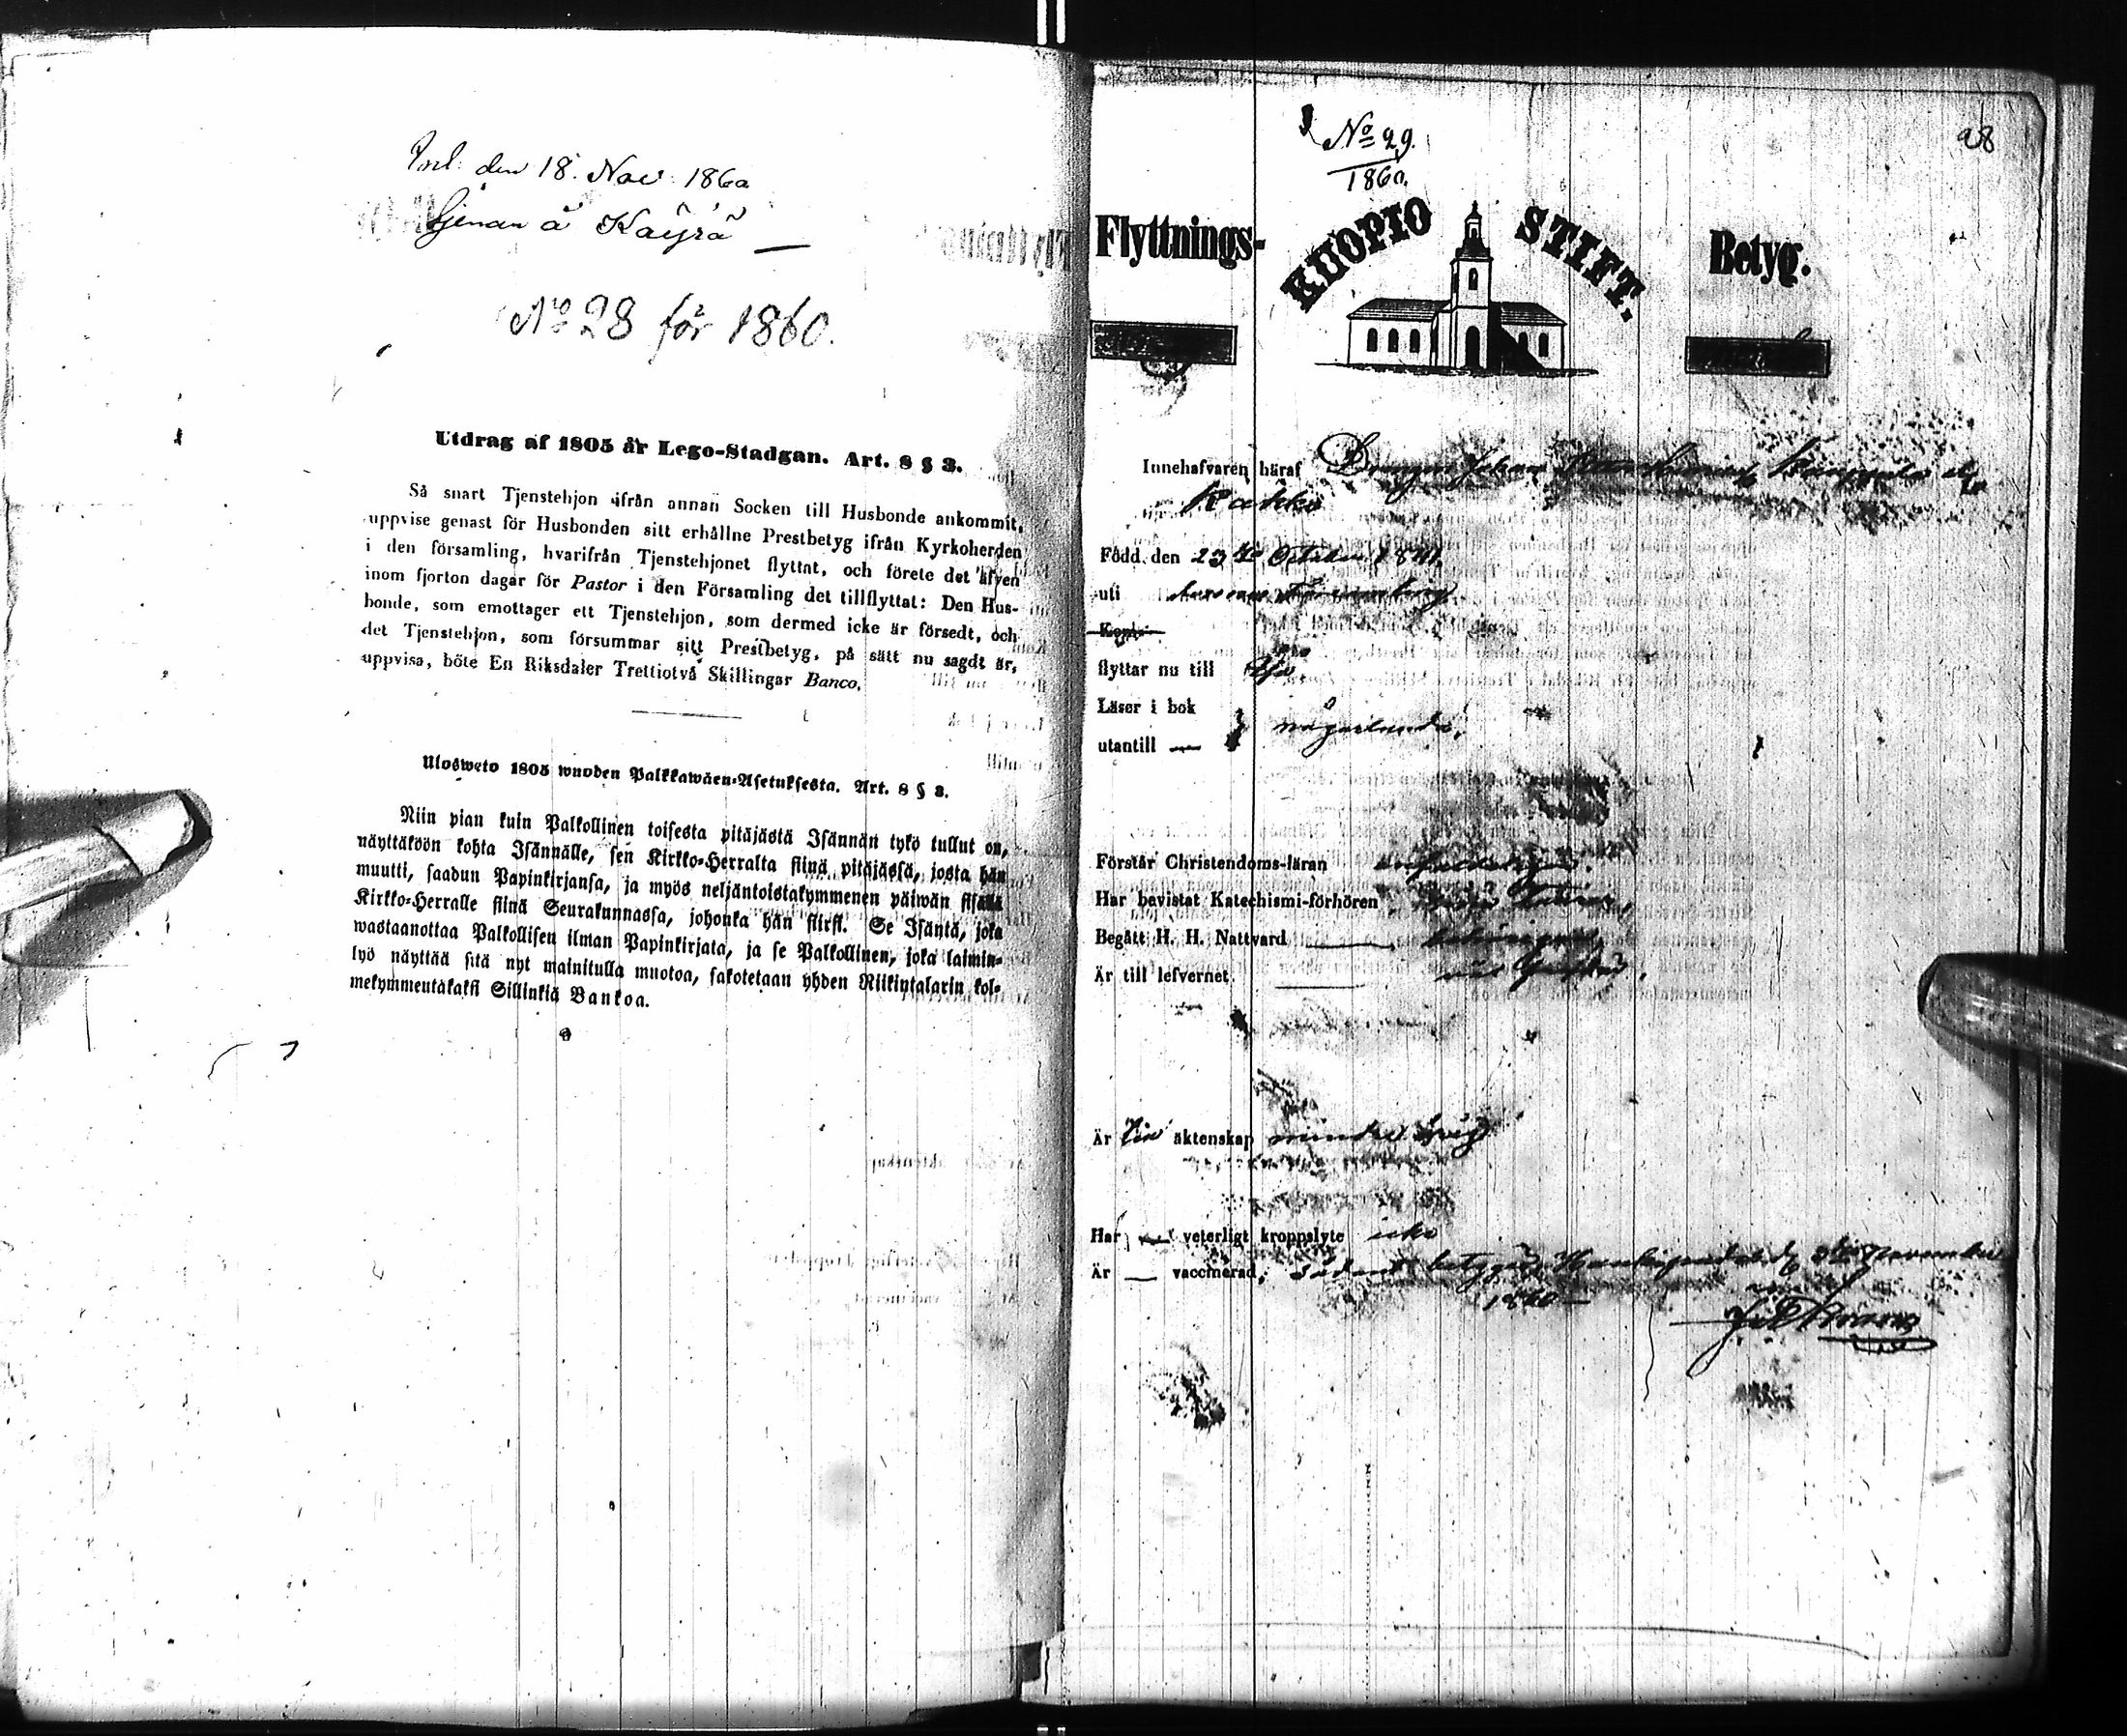 Inl. den 18. Nov. 1860
Tjenar å Käyrä
No 28 för 1860.
Utdrag af 1805 år Lego-Stadgan. Art. 8 § 3.
Så snart Tjenstehjon ifrån annan Socken till Husbonde ankommit,
uppvise genast för Husbonden sitt erhållne Prestbetyg ifrån Kyrkoherden
i den församling, hvarifrån Tjenstehjonet flyttat, och förete det äfven
inom fjorton dagar för Pastor i den Församling det tillflyttat: Den Hus-
bonde, som emottager ett Tjenstehjon, som dermed icke är försedt, och
det Tjenstehjon, som försummar sitt Prestbetyg, på sätt nu sagdt är,
uppvisa, böte En Riksdaler Trettiotvå Skillingar Banco.
Ulosweto 1805 wuoden Palkkawäen-Asetuksesta. Art. 8 § 3.
Niin pian kuin Palkollinen toisesta pitäjästä Isännän tykö tullut on,
näyttäköön kohta Isännälle, sen Kirkko-Herralta siinä pitäjässä, josta hän
muutti, saadun Papinkirjansa, ja myös neljäntoistakymmenen päiwän sisällä
Kirkko-Herralle siinä Seurakunnassa, johonka hän siirsi. Se Isäntä, joka
wastaanottaa Palkollisen ilman Papinkirjata, ja se Palkollinen, joka laimin-
lyö näyttää sitä nyt mainitulla muotoa, sakotetaan yhden Riikintalarin kol-
mekymmentäkaksi Sillinkiä Bankoa.
28
No 29.
1860.
Flyttnings- KUOPIO STIFT. Betyg.
Innehafvaren häraf Drengen Johan
Född den 23 October 1841.
uti Församling
flyttar nu till
Läser i bok
utantill någorlunda.
Förstår Christendoms-läran enfaldigt.
Har bevistat Katechismi-förhören
Begått H. H. Nattvard
Är till lefvernet
Är till äktenskap mindre årig
Har veterligt kroppslyte icke
Är vaccinerad, sådant betygar November
1860